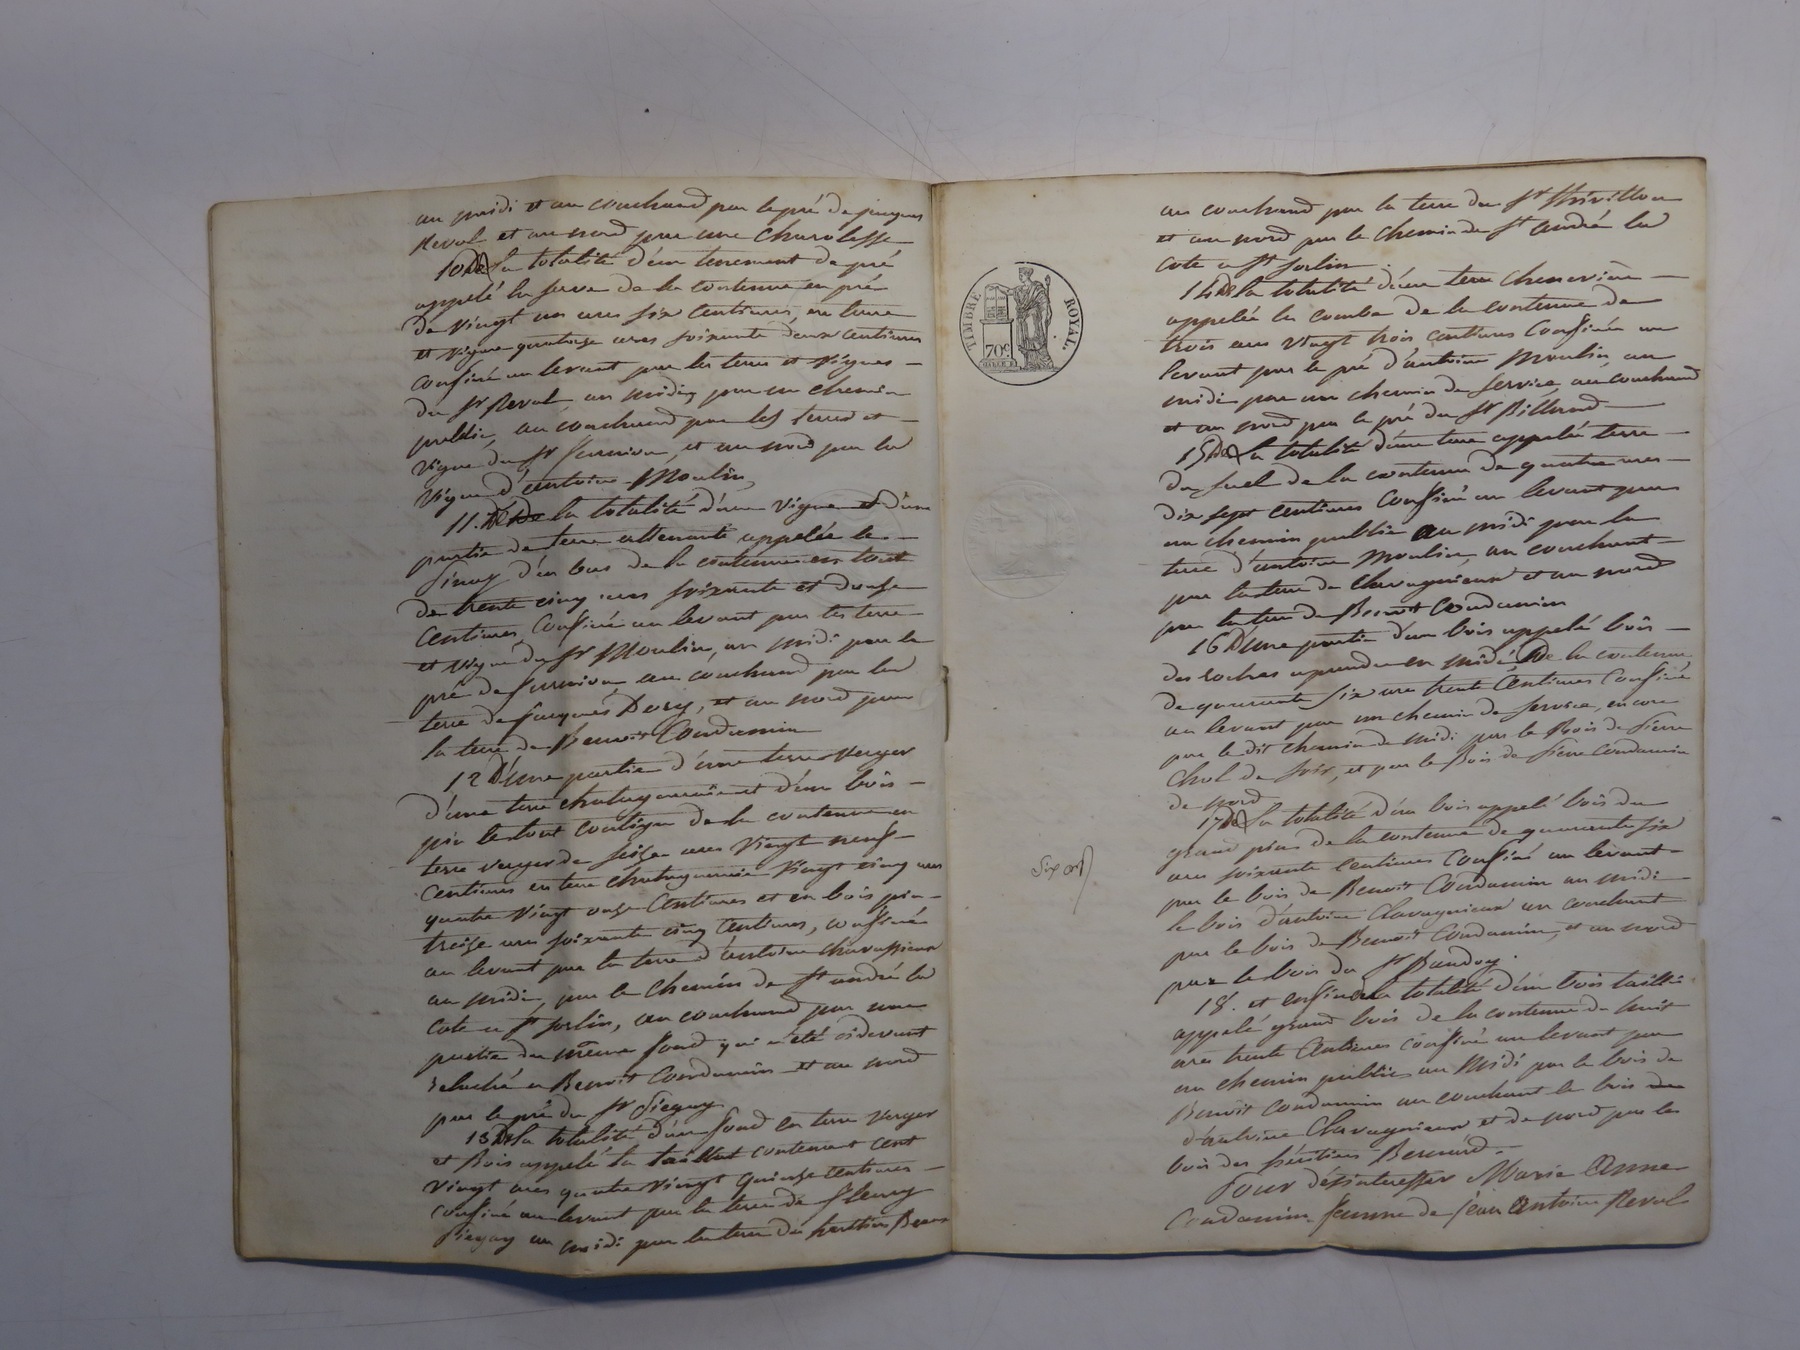 au midi et au couchand par le pré de jacques
Revol et au nord par une charolesse
10 De la totalité d'un tenement de pré
appelé la serve de la contenue en pré
de vingt un ares six centiares, en terre
et vigne quatorze ares soixante deux centiares
confiné au levant par les terres et vignes
du Sr Revol au midi par un chemin
public, au couchand par les terres et
vigne du Sr et au nord par la
vigne d'antoine Moulin
11. De la totalité d'une vigne et d'une
partie de terre attenante appelée le
d'en bas de la contenue en tout
de trente cinq ares soixante et douze
centiares confiné au levant par les terre
et vigne du Sr Moulin, au midi par le
pré de au couchand par la
terre de jacques Dory, et au nord par
la terre de Benoit Condamin
12 D'une partie d'une terre verger
d'une terre chataigneraie et d'un bois
pin le tout contigu de la contenue en
terre verger de seize ares vingt neuf
centiares en terre chataigneraie vingt cinq ares
quatre vingt onze centiares et en bois pin
treize ares soixante cinq centiares, confinée
au levant par la terre d'antoine chavassieux
au midi, par le chemin de St andré la
cote a St sorlin, au couchand par une
partie du même fond qui a été cidevant
relaché a Benoit Condamin et au nord
par le pré du Sr Piegay
13 De la totalité d'un fond en terre verger
et Bois appelé la taillat contenant cent
vingt ares quatre vingt quinze centiares
confiné au levant par la terre de fleury
Piegay au midi par la terre du
au couchand par la terre du Sr Thivillon
et au nord par le chemin de St andré la
cote a St sorlin.
14 De la totalité d'une terre cheneviere
appelée la combe de la contenue de
trois ares vingt trois centiares confinée au
levant par le pré d'antoine Moulin, au
midi par un chemin de service, au couchand
et au nord par le pré du Sr Billand
15 De la totalité d'une terre appelée terre
du suel de la contenue de quatre ares
dix sept centiares confiné au levant par
un chemin public au midi par la
terre d'antoine Moulin, au couchant
par la terre de Clavagnieux et au nord
par la terre de Benoit Condamin
16 D'une partie d'un bois appelé bois
des roches a prendre en midi De la contenue
de quarante six ares trente centiares confiné
au levant par un chemin de service, encore
par le dit chemin de midi par le Bois de Pierre
Chol de soir, et par le Bois de Pierre Condamin
de nord
17 De la totalité d'un bois appelé bois du
grand pin de la contenue de quarante six
ares soixante centiares confiné au levant
par le bois de Benoit Condamin au midi
le bois d'antoine Clavagnieux au couchant
par le bois de Benoit Condamin, et au nord
par le bois du Sr Bandoy.
18. et enfin de la totalité d'un bois taillis
appelé grand bois de la contenue de huit
ares trente centiares confiné au levant par
un chemin public au midi par le bois de
Benoit Condamin au couchant le bois
d'antoine Clavagnieux et de nord par les
bois des héritiers Bernard.
Pour désinteresser Marie Anne
Condamin femme de jean Antoine Revol
TIMBRE ROYAL.
70c